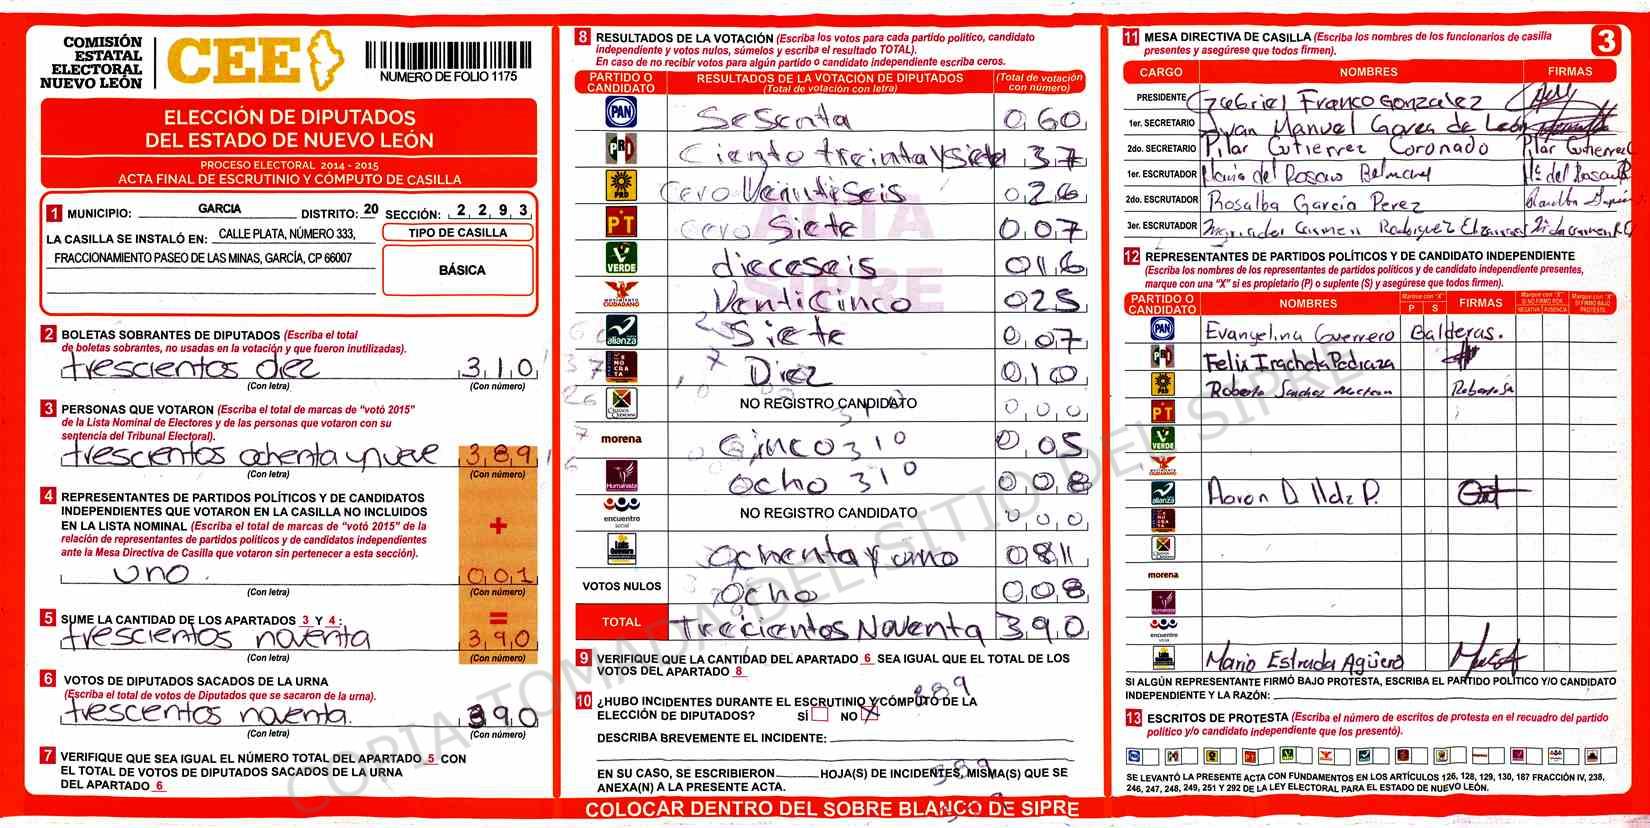 COMISIÓN
ESTATAL
ELECTORAL
NUEVO LEÓN
CEE
NUMERO DE FOLIO 1175
ELECCIÓN DE DIPUTADOS
DEL ESTADO DE NUEVO LEÓN
PROCESO ELECTORAL 2014 - 2015
ACTA FINAL DE ESCRUTINIO Y CÓMPUTO DE CASILLA
1 MUNICIPIO: GARCIA DISTRITO: 20 SECCIÓN: 2 2 9 3
LA CASILLA SE INSTALÓ EN: CALLE PLATA, NÚMERO 333,
FRACCIONAMIENTO PASEO DE LAS MINAS, GARCÍA, CP 66007
TIPO DE CASILLA
BÁSICA
2 BOLETAS SOBRANTES DE DIPUTADOS (Escriba el total
de boletas sobrantes, no usadas en la votación y que fueron inutilizadas).
trescientos diez 3 1 0
(Con letra) (Con número)
3 PERSONAS QUE VOTARON (Escriba el total de marcas de “votó 2015”
de la Lista Nominal de Electores y de las personas que votaron con su
sentencia del Tribunal Electoral).
trescientos ochenta y nueve 3 8 9
(Con letra) (Con número)
4 REPRESENTANTES DE PARTIDOS POLÍTICOS Y DE CANDIDATOS
INDEPENDIENTES QUE VOTARON EN LA CASILLA NO INCLUIDOS
EN LA LISTA NOMINAL (Escriba el total de marcas de “votó 2015” de la
relación de representantes de partidos políticos y de candidatos independientes
ante la Mesa Directiva de Casilla que votaron sin pertenecer a esta sección).
+
uno. 0 0 1
(Con letra) (Con número)
=
5 SUME LA CANTIDAD DE LOS APARTADOS 3 Y 4:
trescientos noventa 3 9 0
(Con letra) (Con número)
6 VOTOS DE DIPUTADOS SACADOS DE LA URNA
(Escriba el total de votos de Diputados que se sacaron de la urna).
trescientos noventa. 3 9 0
(Con letra) (Con número)
7 VERIFIQUE QUE SEA IGUAL EL NÚMERO TOTAL DEL APARTADO 5 CON
EL TOTAL DE VOTOS DE DIPUTADOS SACADOS DE LA URNA
DEL APARTADO 6
8 RESULTADOS DE LA VOTACIÓN (Escriba los votos para cada partido político, candidato
independiente y votos nulos, súmelos y escriba el resultado TOTAL).
En caso de no recibir votos para algún partido o candidato independiente escriba ceros.
PARTIDO O CANDIDATO RESULTADOS DE LA VOTACIÓN DE DIPUTADOS (Total de votación con letra) (Total de votación con número)
PAN Sesenta 0 60
PRI Ciento treinta y siete 1 3 7
PRD Cero Veintiseis 0 2 6
PT Cero Siete 0 0 7
VERDE dieceseis 0 1 6
MOVIMIENTO CIUDADANO Venticinco 0 2 5
alianza Siete 0 0 7
DEMOCRATA Diez 0 1 0
NO REGISTRO CANDIDATO 0 0 0
morena Cinco 31° 0 05
Humanista ocho 31° 0 0 8
encuentro social NO REGISTRO CANDIDATO 0 0 0
Ochenta y uno 0 8 1
VOTOS NULOS Ocho 0 0 8
TOTAL Trecientos Noventa 3 9 0
ACTA
SIPRE
9 VERIFIQUE QUE LA CANTIDAD DEL APARTADO 6 SEA IGUAL QUE EL TOTAL DE LOS
VOTOS DEL APARTADO 8
10 ¿HUBO INCIDENTES DURANTE EL ESCRUTINIO Y CÓMPUTO DE LA
ELECCIÓN DE DIPUTADOS? SÍ NO X
DESCRIBA BREVEMENTE EL INCIDENTE:
EN SU CASO, SE ESCRIBIERON HOJA(S) DE INCIDENTES, MISMA(S) QUE SE
ANEXA(N) A LA PRESENTE ACTA.
COLOCAR DENTRO DEL SOBRE BLANCO DE SIPRE
11 MESA DIRECTIVA DE CASILLA (Escriba los nombres de los funcionarios de casilla
presentes y asegúrese que todos firmen).
3
CARGO NOMBRES FIRMAS
PRESIDENTE Gabriel Franco Gonzalez
1er. SECRETARIO Juan Manuel Govea de León
2do. SECRETARIO Pilar Gutierrez Coronado Pilar Gutierrez C
1er. ESCRUTADOR Maria del Rosario Ma del Rosario
2do. ESCRUTADOR Rosalba Garcia Perez
3er. ESCRUTADOR Carmen Rodriguez
12 REPRESENTANTES DE PARTIDOS POLÍTICOS Y DE CANDIDATO INDEPENDIENTE
(Escriba los nombres de los representantes de partidos políticos y de candidato independiente presentes,
marque con una “X” si es propietario (P) o suplente (S) y asegúrese que todos firmen).
PARTIDO O CANDIDATO NOMBRES Marque con “X” P S FIRMAS Marque con “X” SI NO FIRMÓ POR: NEGATIVA AUSENCIA Marque con “X” SI FIRMÓ BAJO PROTESTA
PAN Evangelina Guerrero Balderas.
PRI Felix Irachcta Pedraza
PRD Roberto Sanchez Roberto Sn
PT
VERDE
MOVIMIENTO CIUDADANO
alianza Aaron D P.
morena
Humanista
encuentro social
Mario Estrada Agüero
SI ALGÚN REPRESENTANTE FIRMÓ BAJO PROTESTA, ESCRIBA EL PARTIDO POLÍTICO Y/O CANDIDATO
INDEPENDIENTE Y LA RAZÓN:
13 ESCRITOS DE PROTESTA (Escriba el número de escritos de protesta en el recuadro del partido
político y/o candidato independiente que los presentó).
SE LEVANTÓ LA PRESENTE ACTA CON FUNDAMENTOS EN LOS ARTÍCULOS 126, 128, 129, 130, 187 FRACCIÓN IV, 238,
246, 247, 248, 249, 251 Y 292 DE LA LEY ELECTORAL PARA EL ESTADO DE NUEVO LEÓN.
COPIA TOMADA DEL SITIO DEL SIPRE